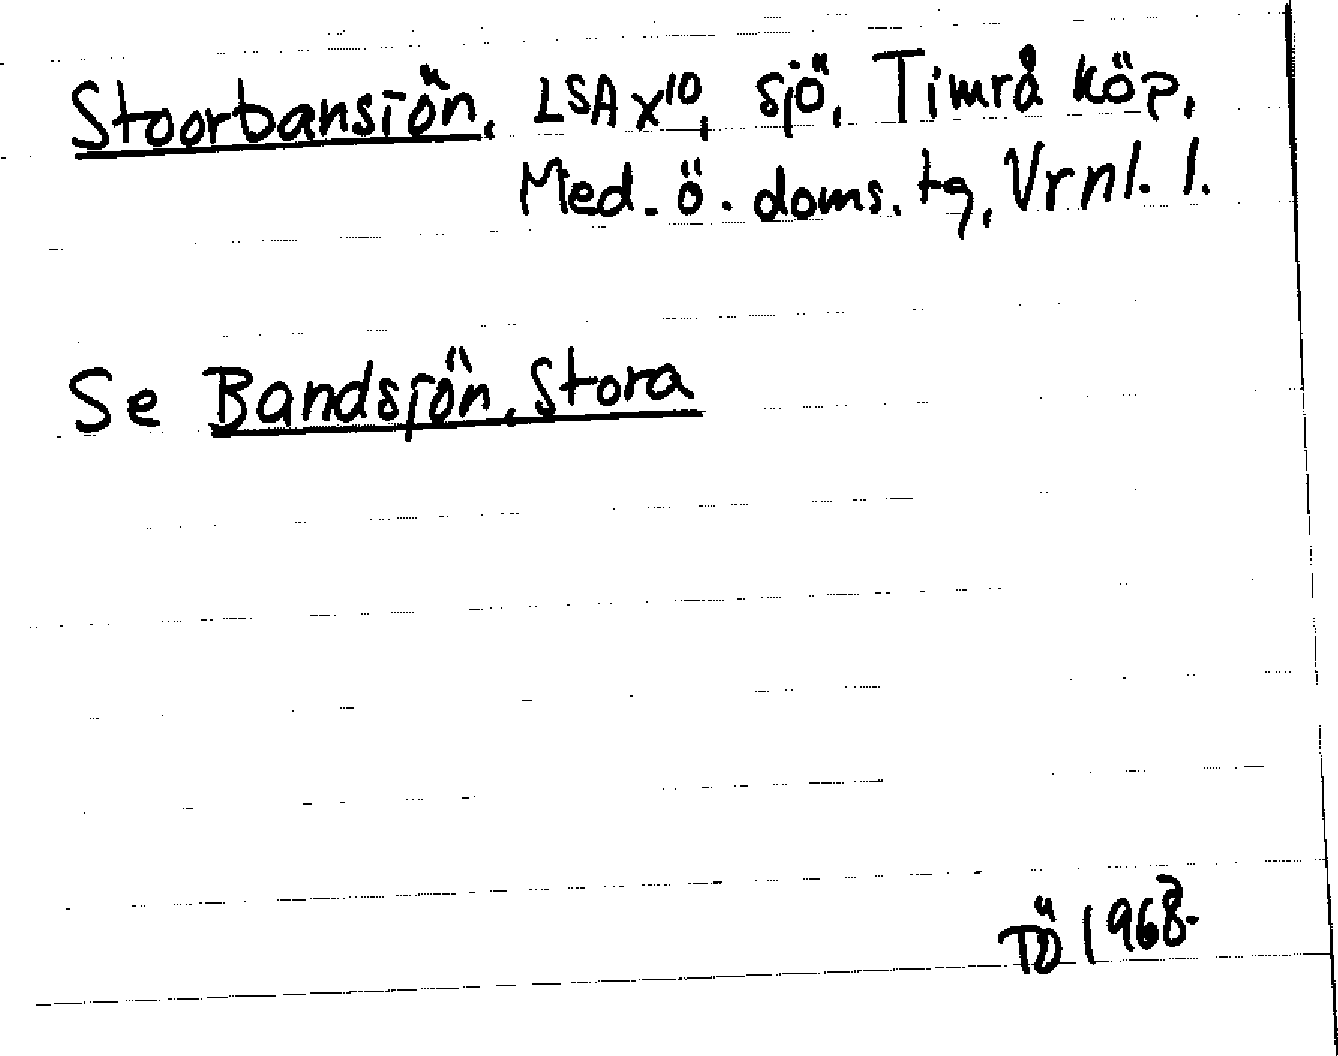 Stoorbansiön. LSA X¹⁰, sjö, Timrå köp,
Med. ö. doms. tg, Vrnl. l.
Se Bandsjön, Stora
TÖ 1968.